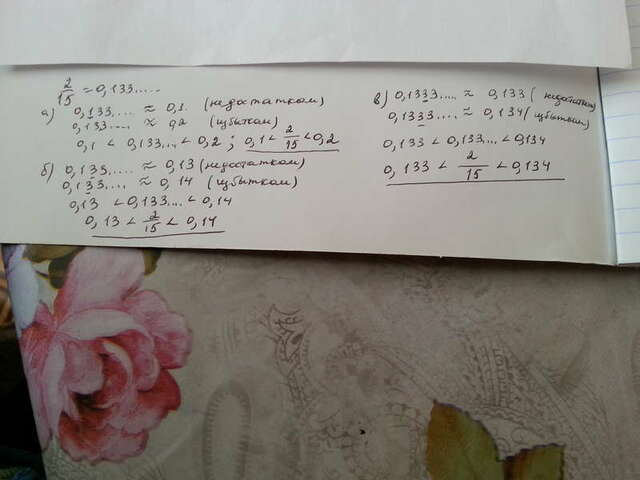 2/15 = 0,133.....
а) 0,133.... ≈ 0,1. (недостатком)
0,133.... ≈ 0,2 (избытком)
0,1 < 0,133... < 0,2 ; 0,1 < 2/15 < 0,2
б) 0,133.... ≈ 0,13 (недостатком)
0,133.... ≈ 0,14 (избытком)
0,13 < 0,133... < 0,14
0,13 < 2/15 < 0,14
в) 0,1333.... ≈ 0,133 (недостатком)
0,1333.... ≈ 0,134 (избытком)
0,133 < 0,133... < 0,134
0,133 < 2/15 < 0,134